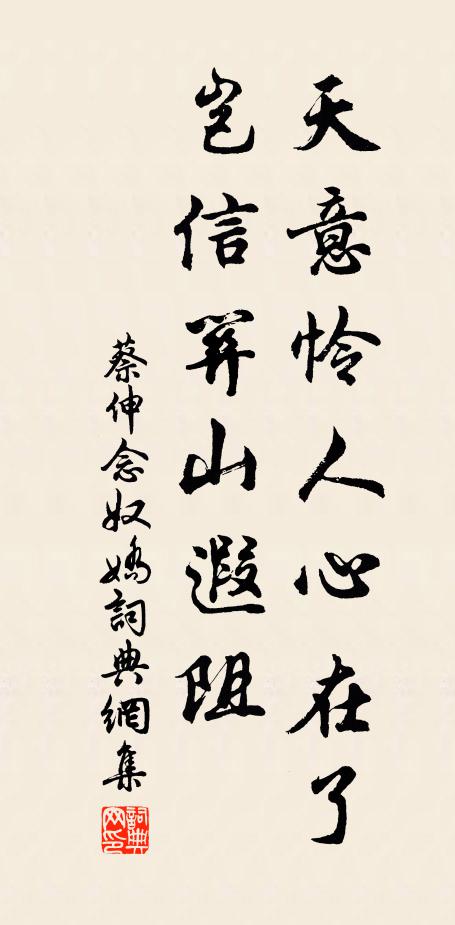 天意怜人心在了
岂信关山遐阻
蔡伸念奴娇詞典網集
詞典网印